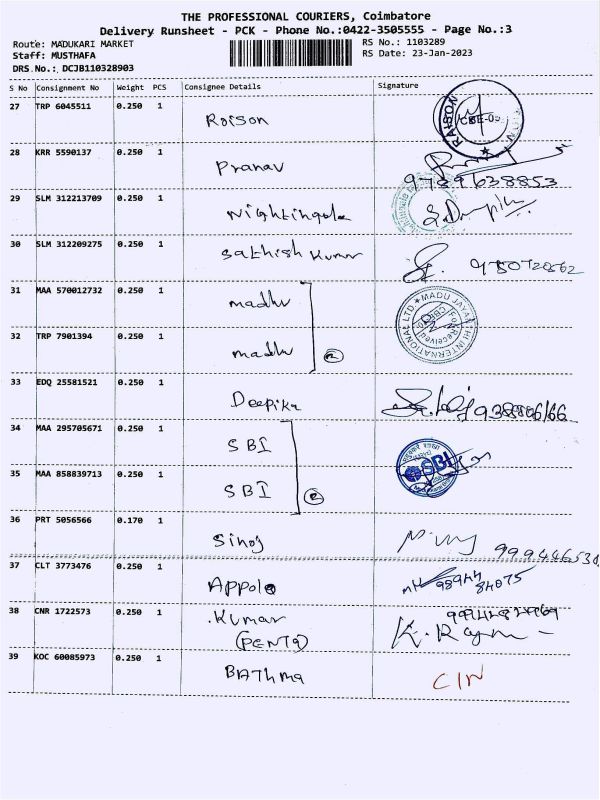 THE PROFESSIONAL COURIERS, Coimbatore
Delivery Runsheet - PCK - Phone No.:0422-3505555 - Page No.:3
Route: MADUKARI MARKET RS No.: 1103289
Staff: MUSTHAFA RS Date: 23-Jan-2023
DRS.No.: DCJB110328903
S No Consignment No Weight PCS Consignee Details Signature
27 TRP 6045511 0.250 1 Roison RAISON
28 KRR 5590137 0.250 1 Pranav 9789638853
29 SLM 312213709 0.250 1 Nightingale
30 SLM 312209275 0.250 1 Sathish Kumar
31 MAA 570012732 0.250 1 madhu
32 TRP 7901394 0.250 1 madhu ② MADU JAYANTHI INTERNATIONAL LTD.
33 EDQ 25581521 0.250 1 Deepika
34 MAA 295705671 0.250 1 SBI
35 MAA 858839713 0.250 1 SBI ② SBI
36 PRT 5056566 0.170 1 Sinoj
37 CLT 3773476 0.250 1 Appolo
38 CNR 1722573 0.250 1 .Kumar
(PENTA)
39 KOC 60085973 0.250 1 BAThma CIN